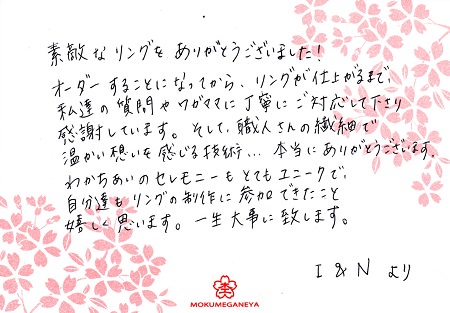 素敵なリングをありがとうございました！
オーダーすることになってから、リングが仕上がるまで、
私達の質問やワガママに丁寧にご対応して下さり
感謝しています。そして、職人さんの繊細で
温かい想いを感じる技術…本当にありがとうございます。
わかちあいのセレモニーもとてもユニークで、
自分達もリングの制作に参加できたこと
嬉しく思います。一生大事に致します。
I & N より
MOKUMEGANEYA